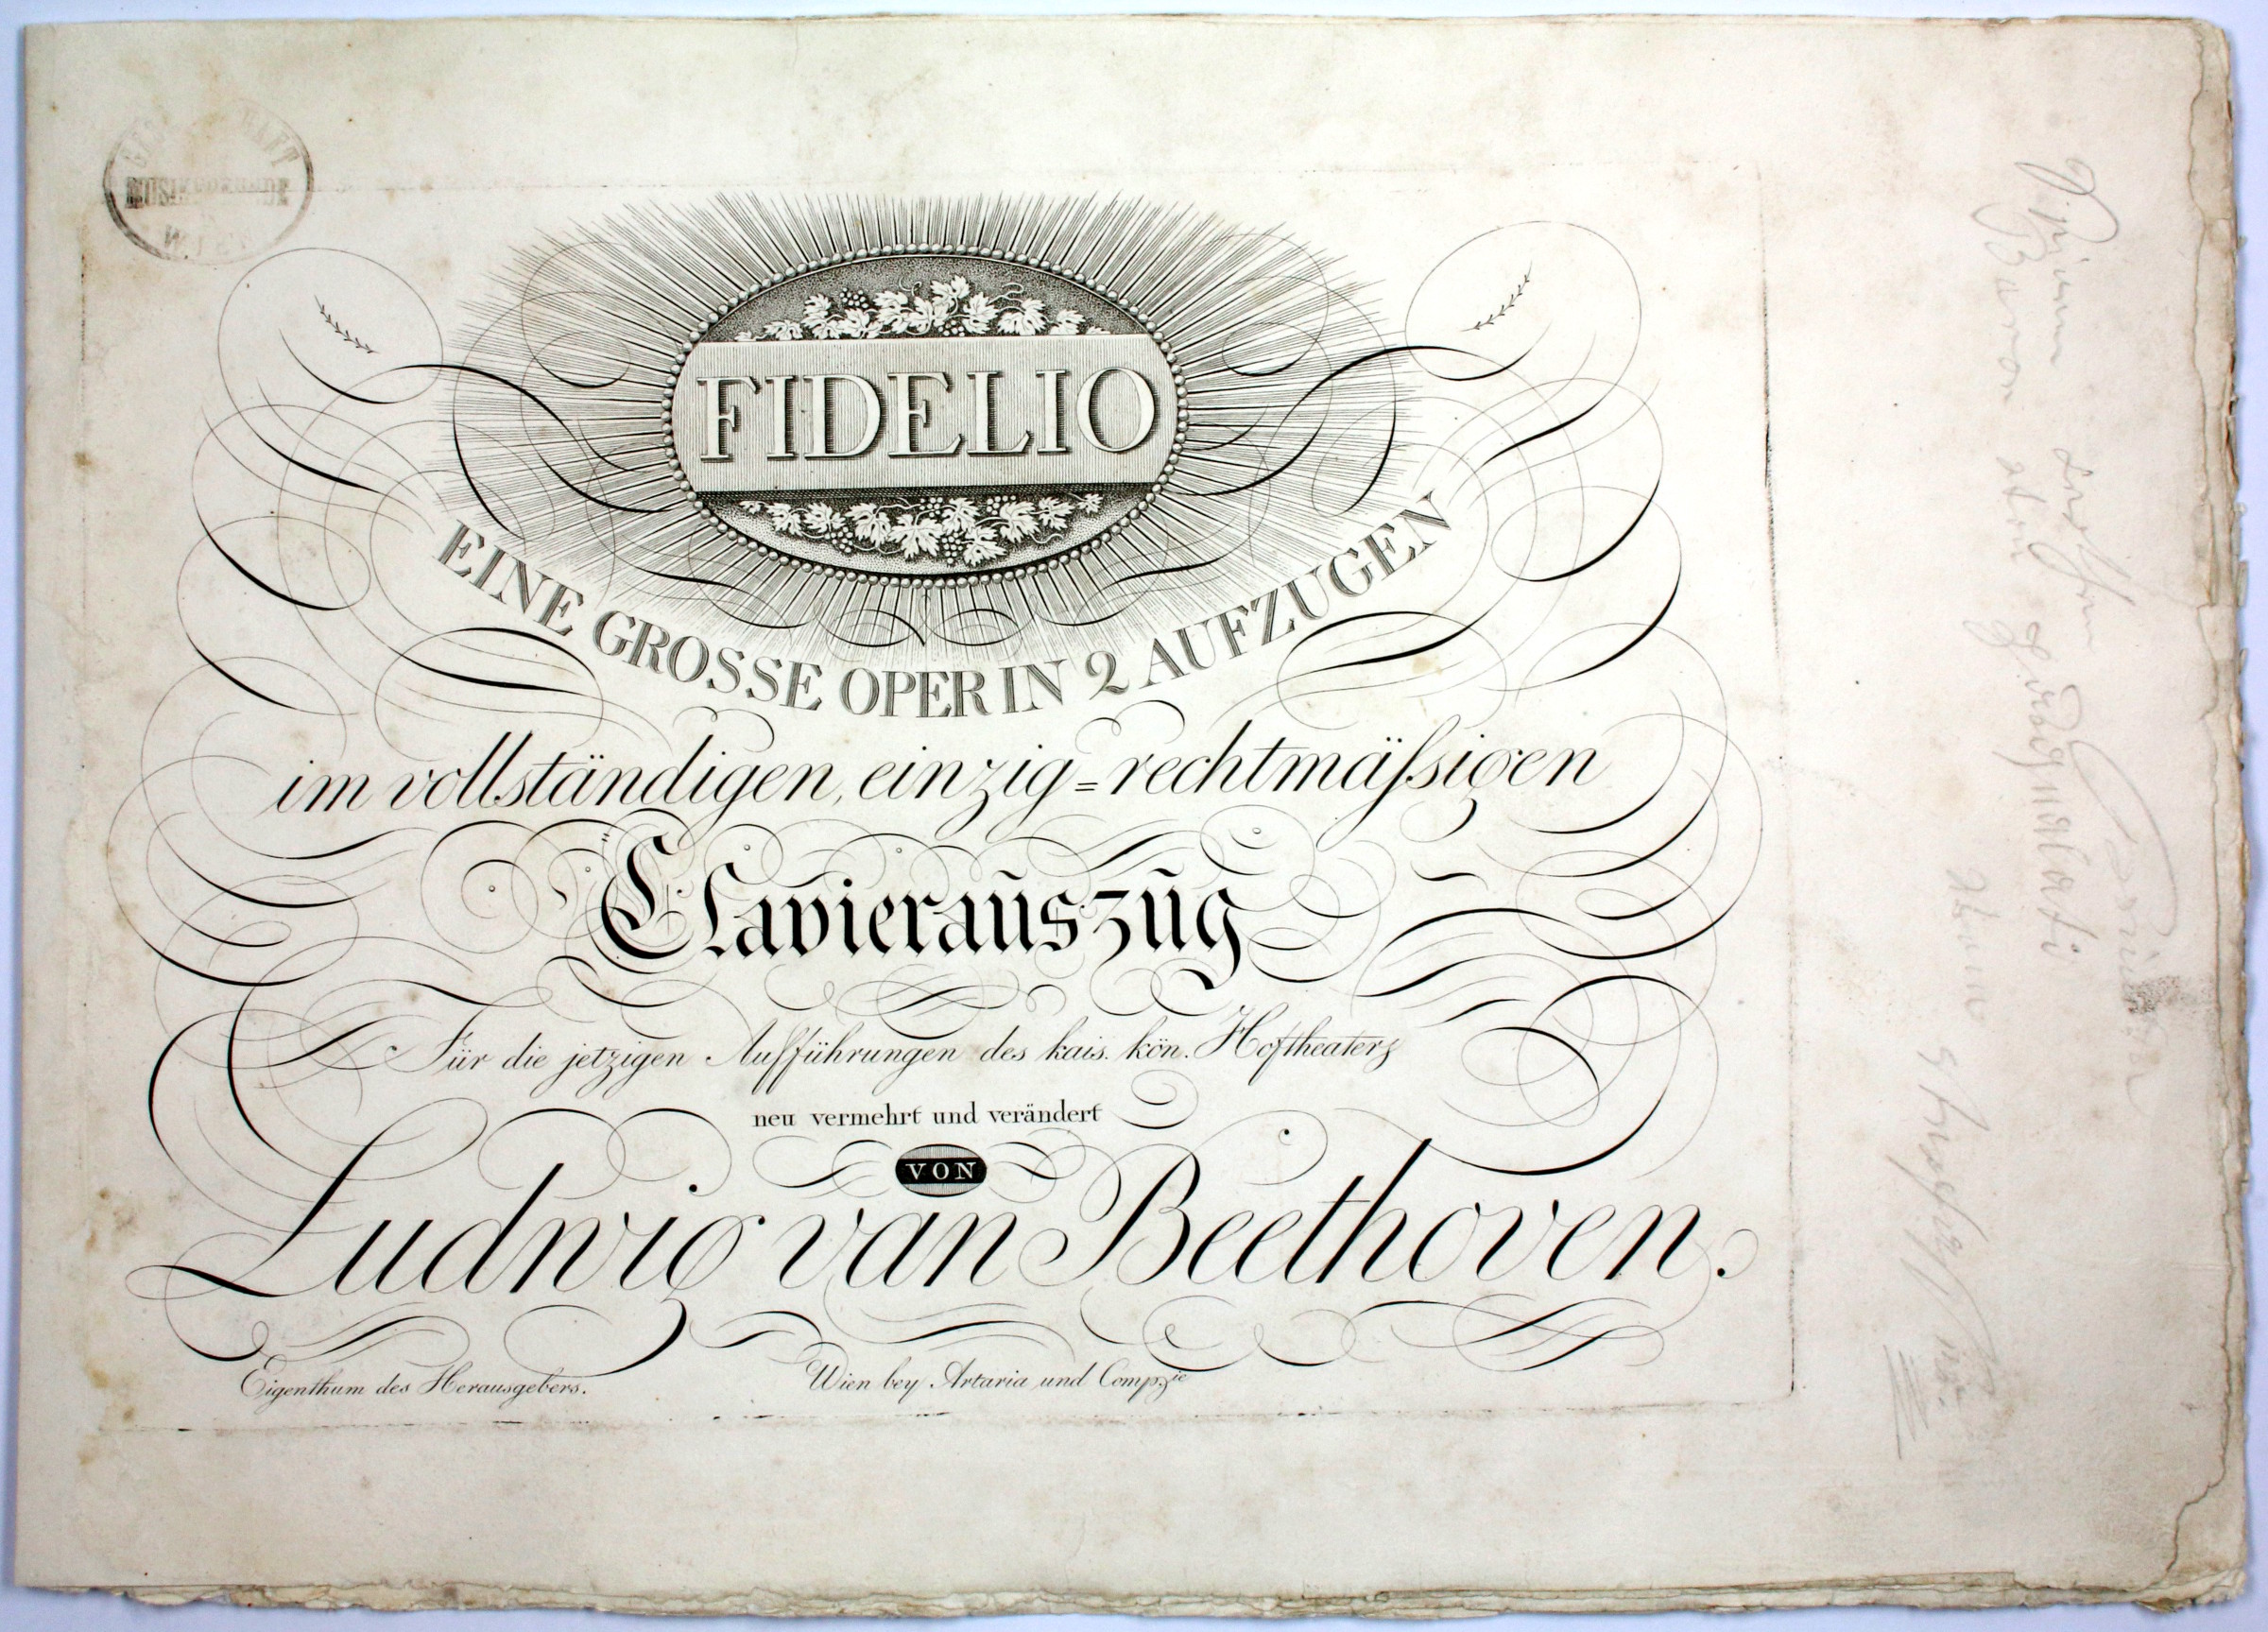 MUSIKFREUNDE
WIEN
FIDELIO
EINE GROSSE OPER IN 2 AUFZUGEN
im vollständigen, einzig=rechtmäſsigen
Clavierauszug
Für die jetzigen Aufführungen des kais. kön. Hoftheaters
neu vermehrt und verändert
VON
Ludwig van Beethoven.
Eigenthum des Herausgebers.
Wien bey Artaria und Comp.
Baron